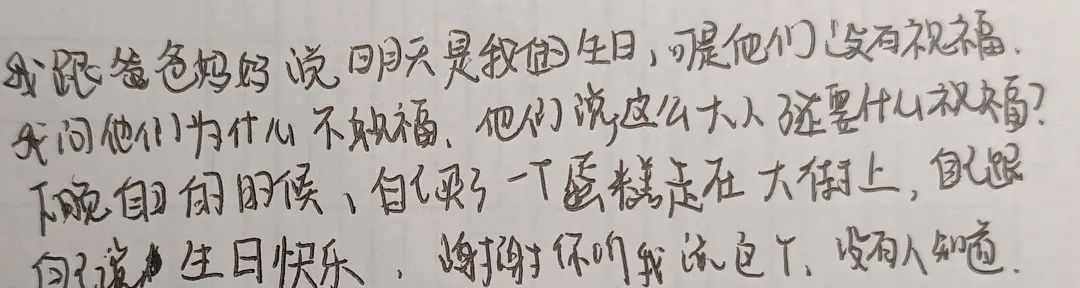 我跟爸爸妈妈说明天是我的生日,可是他们没有祝福.
我问他们为什么不祝福,他们说,这么大人了还要什么祝福?
下晚自习的时候、自己买了一个蛋糕走在大街上,自己跟
自己说生日快乐,谢谢你听我说这个、没有人知道.